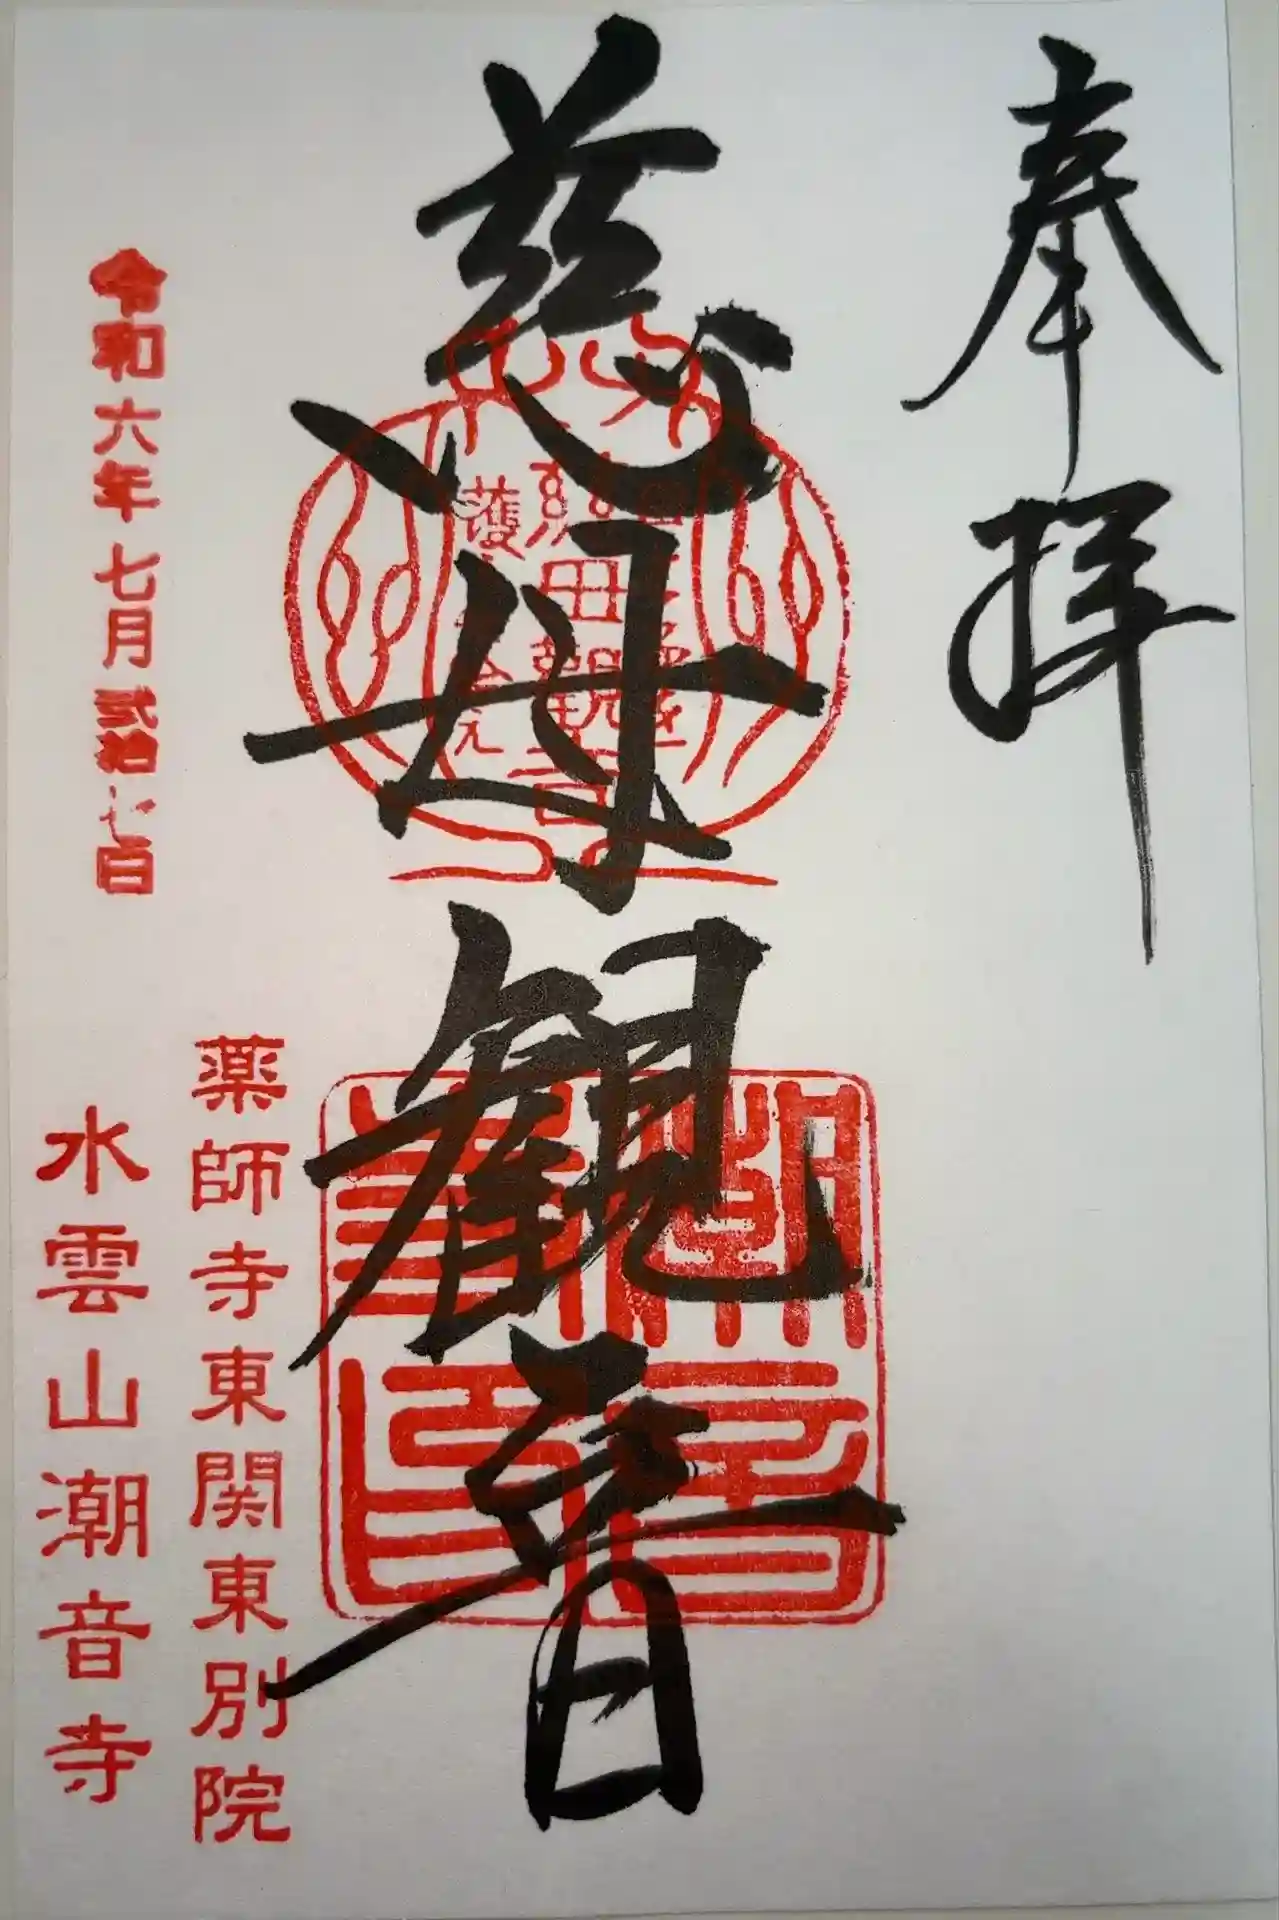 奉拝
慈母観音
薬師寺東関東別院
水雲山潮音寺
令和六年七月弐拾七日